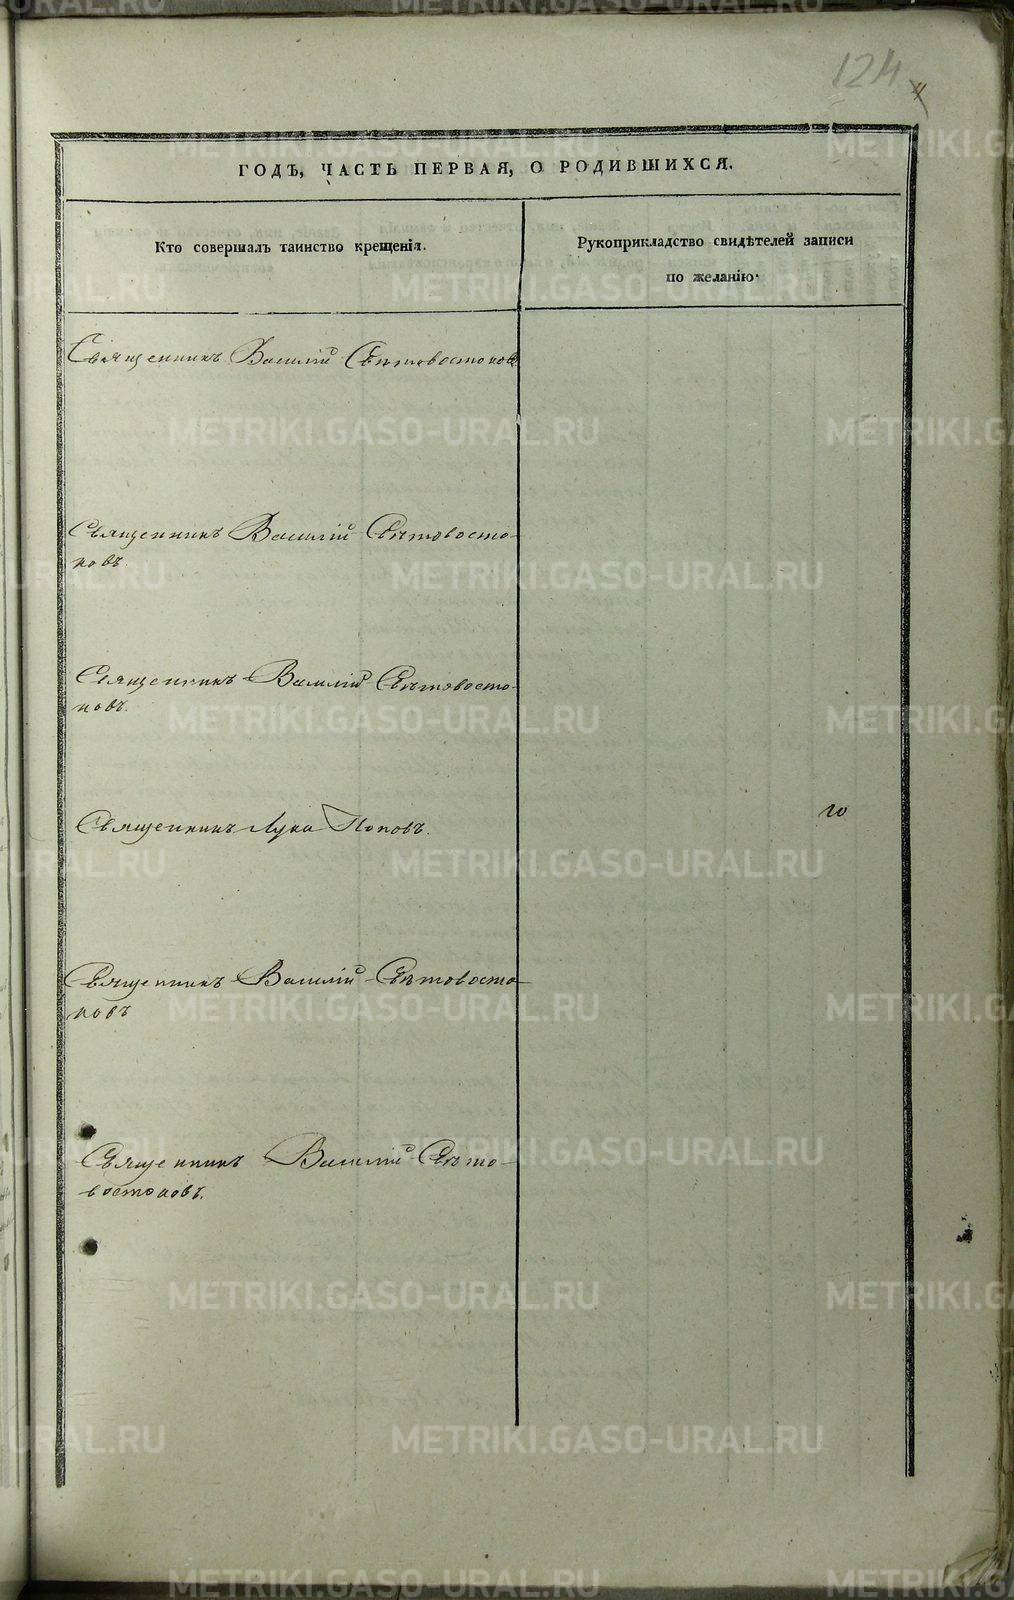 124
ГОДЪ, ЧАСТЬ ПЕРВАЯ, О РОДИВШИХСЯ.
Кто совершалъ таинство крещенія.
Рукоприкладство свидѣтелей записи
по желанію.
Священникъ Василій Свѣтовостоковъ
Священникъ Василій Свѣтовосто-
ковъ.
Священникъ Василій Свѣтовосто-
ковъ.
Священникъ Лука Поповъ.
Священникъ Василій Свѣтовосто-
ковъ
Священникъ Василій Свѣто-
востоковъ.
METRIKI.GASO-URAL.RU